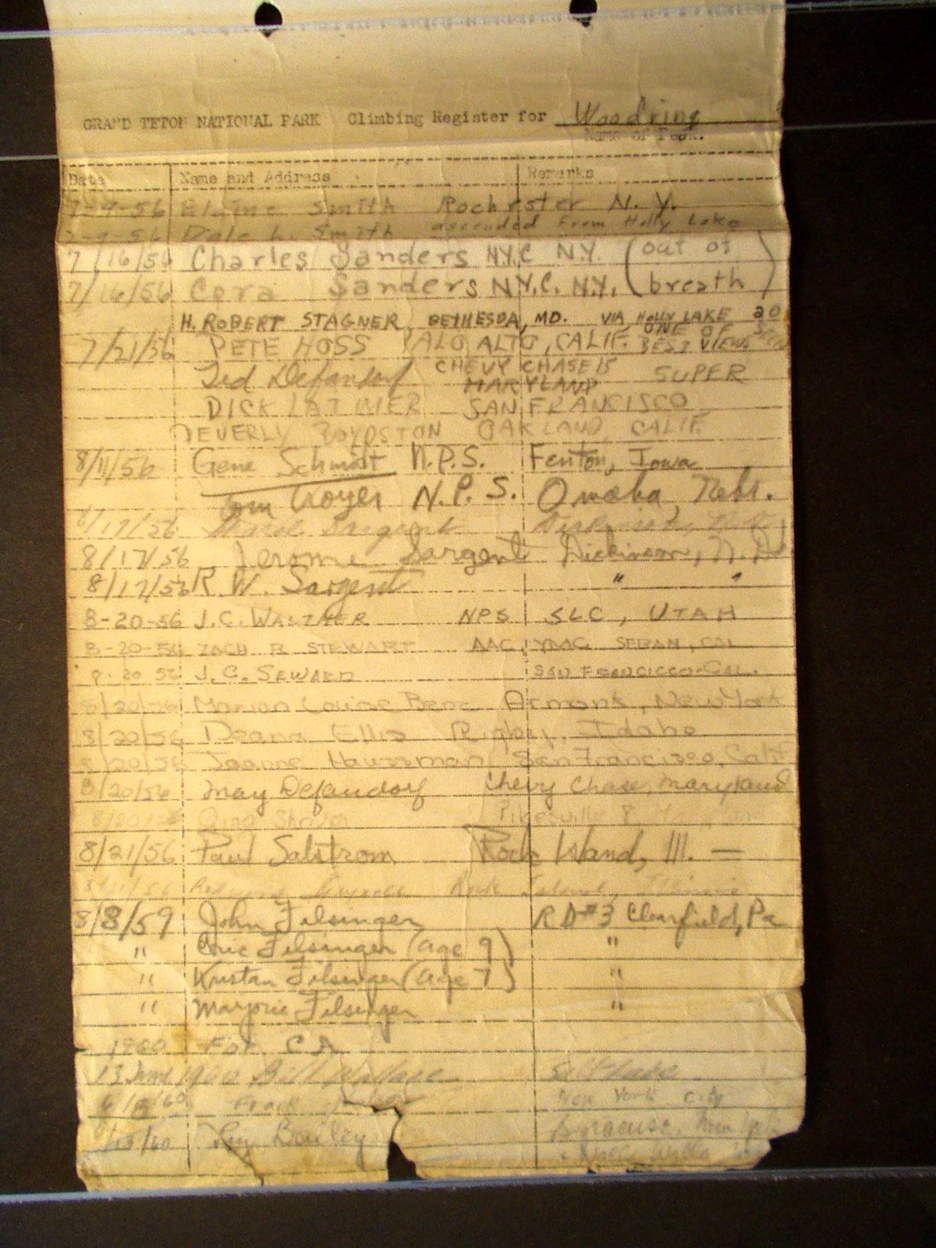 GRAND TETON NATIONAL PARK Climbing Register for Woodring
Name of Peak.
Date Name and Address Remarks
7-9-56 Elaine Smith Rochester N.Y.
7-9-56 Dale L. Smith ascended from Holly Lake
7/16/56 Charles Sanders NYC N.Y. (out of
7/16/56 Cora Sanders N.Y.C. N.Y. breath)
H. ROBERT STAGNER, BETHESDA, MD. VIA HOLLY LAKE
7/21/56 PETE HOSS PALO ALTO, CALIF. ONE OF BEST VIEWS
Ted Defandorf CHEVY CHASE 15 MARYLAND SUPER
DICK LATIMER SAN FRANCISCO
BEVERLY BOYDSTON OAKLAND, CALIF.
8/11/56 Gene Schmidt N.P.S. Fenton, Iowa
Tom Troyer N.P.S. Omaha, Nebr.
8/17/56 Sargent
8/17/56 Jerome Sargent Dickinson, N.D.
8/17/56 R. W. Sargent " "
8-20-56 J.C. WALTHER NPS SLC, UTAH
8-20-56 ZACH R STEWART AAC,
8-20 56 J.C. SEWARD SAN FRANCISCO-CAL.
8/20/56 Marion Louise Armonk, New York
8/20/56 Deana Ellis Rigby, Idaho
8/20/56 Joanne Hauserman San Francisco, Calif
8/20/56 May Defandorf Chevy Chase, Maryland
Pikesville 8, Maryland
8/21/56 Paul Salstrom Rock Island, Ill. —
8/21/56 Rock Island, Illinois
8/8/59 John Filsinger RD#3 Clearfield, Pa
" Eric Filsinger (age 9) "
" Kristan Filsinger (age 7) "
" Marjorie Filsinger "
1960
13 June 1960 Bill Wallace
Frank New York City
Bailey Syracuse, New York